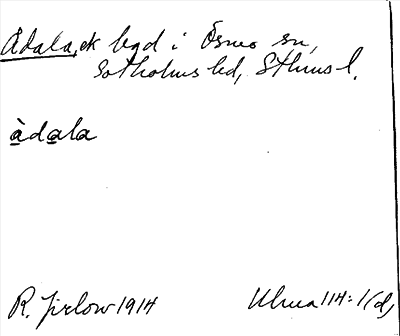 Ådala, ek hgd i Ösmo sn,
Sotholms hd, Sthms l.
àdala
R. Jirlow 1914 Ulma 114:1(d)